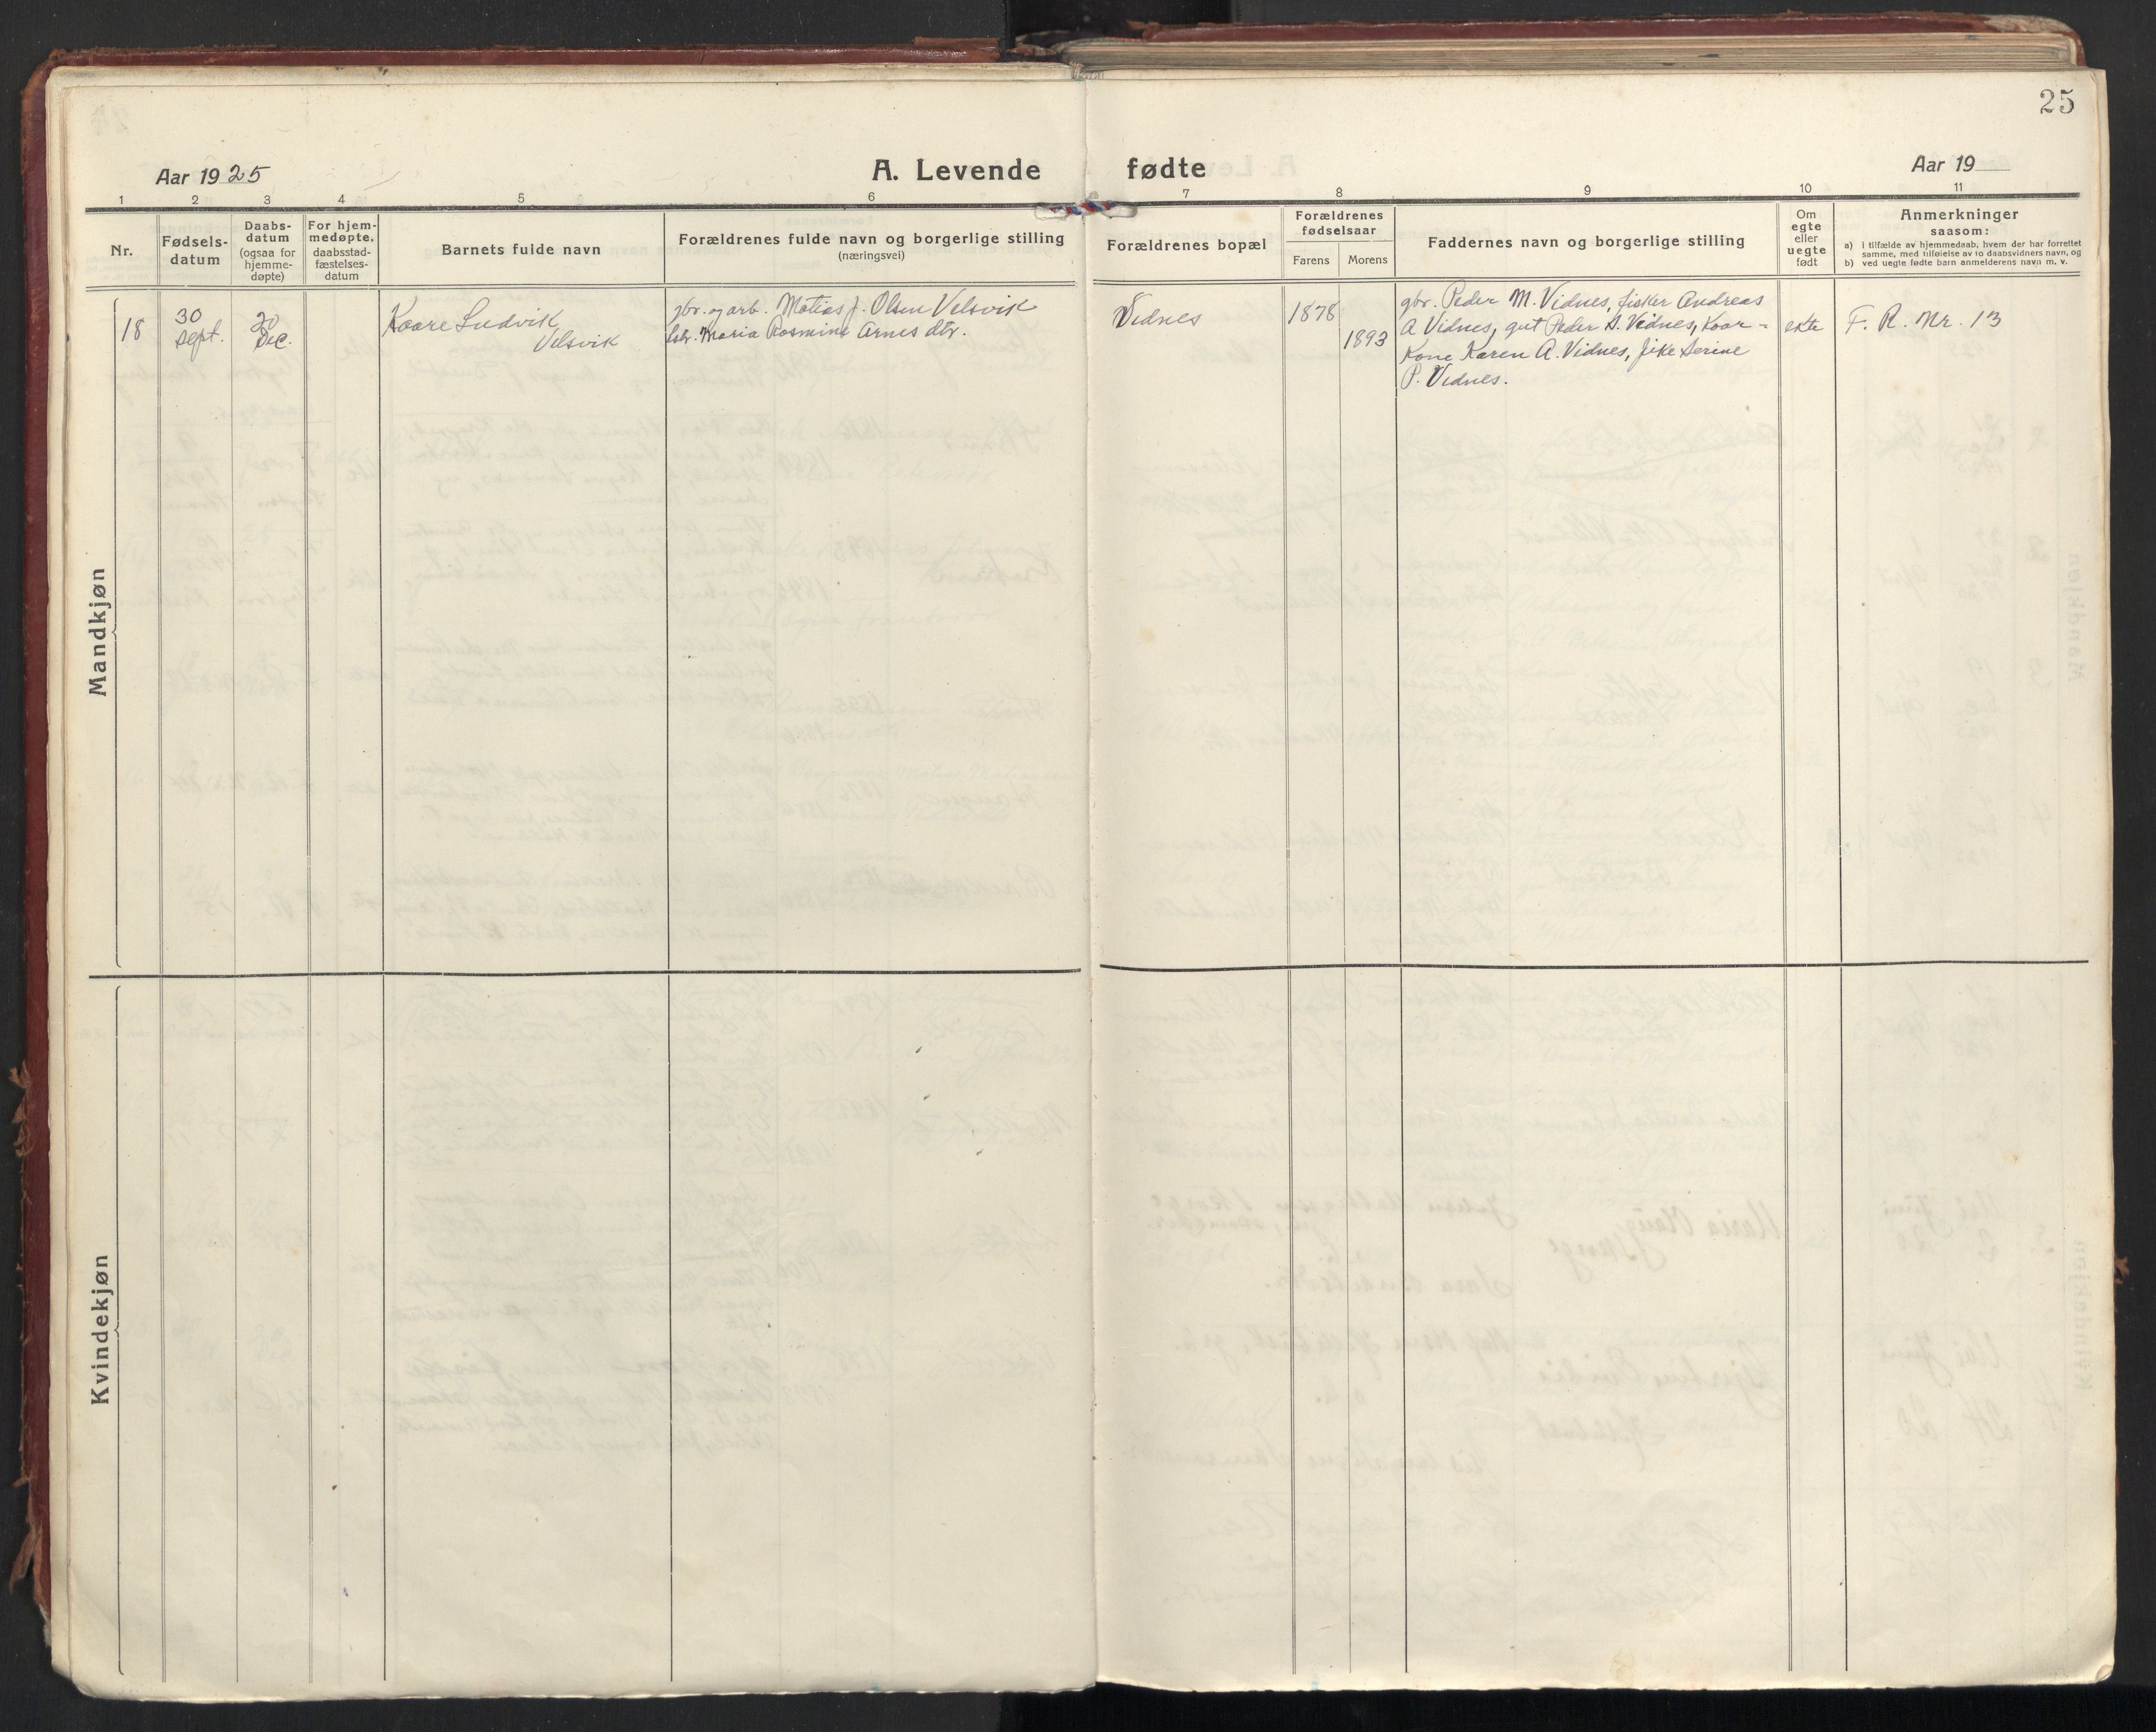 25
Aar 1925
A. Levende fødte
Aar 19
1 2 3 4 5 6 7 8 9 10 11
Nr.
Fødsels-
datum
Daabs-
datum
(ogsaa for
hjemme-
døpte)
For hjem-
medøpte,
daabsstad-
fæstelses-
datum
Barnets fulde navn
Forældrenes fulde navn og borgerlige stilling
(næringsvei)
Forældrenes bopæl
Forældrenes
fødselsaar
Farens
Morens
Faddernes navn og borgerlige stilling
Om
egte
eller
uegte
født
Anmerkninger
saasom:
a) i tilfælde av hjemmedaab, hvem der har forrettet
samme, med tilføielse av to daabsvidners navn, og
b) ved uegte fødte barn anmelderens navn m. v.
Mandkjøn
18
30
Sept.
20
Dec.
Kaare Ludvik
Velsvik
gbr. og arb. Matias J. Olsen Velsvik
Maria Rasmine Arnes dtr.
Vidnes
1878
1893
gbr. Peder M. Vidnes, fisker Andreas
A Vidnes, gut Peder A. Vidnes, Kaar-
Kone Karen A. Vidnes, pike Serine
P. Vidnes.
ekte
F. R. Nr. 13
Kvindekjøn